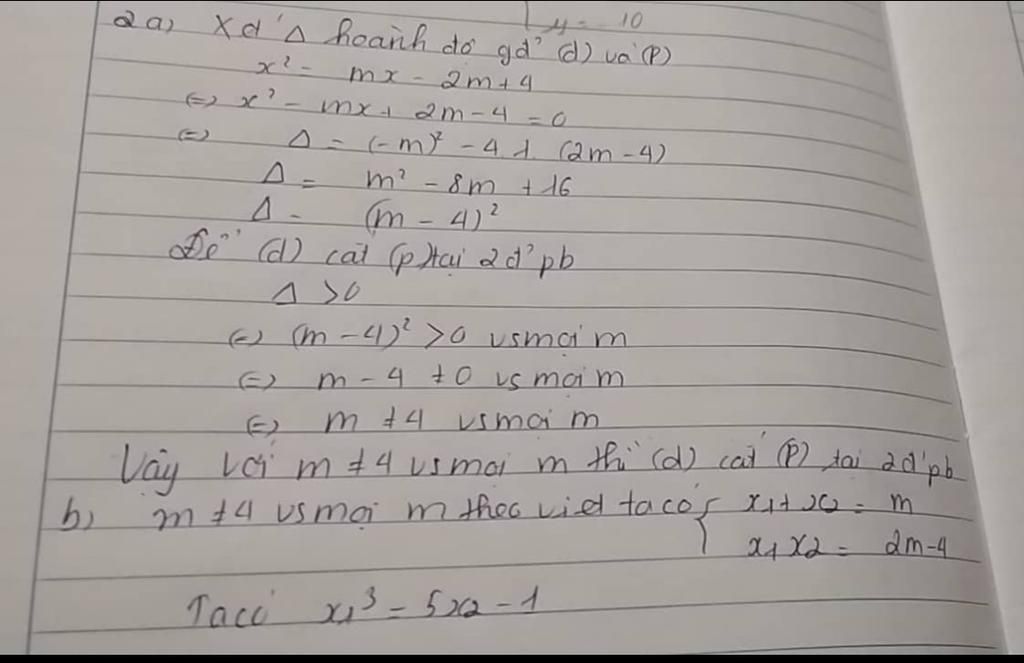 y = 10
2a, Xđ Δ hoành độ gđ' (d) và (P)
x² = mx - 2m+4
(=) x² - mx + 2m-4 = 0
(=) Δ = (-m)² - 4.1.(2m-4)
Δ = m² - 8m + 16
Δ = (m - 4)²
Để (d) cắt (p) tại 2đ' pb
Δ >0
(=) (m-4)² >0 vs mọi m
(=) m - 4 ≠0 vs mọi m
(=) m ≠4 vs mọi m
Vậy với m ≠4 vs mọi m thì (d) cắt (P) tại 2đ' pb
b, m ≠4 vs mọi m theo viet ta có { x1+ x2 = m
x1 x2 = 2m-4
Ta có x1³ = 5x2 - 1